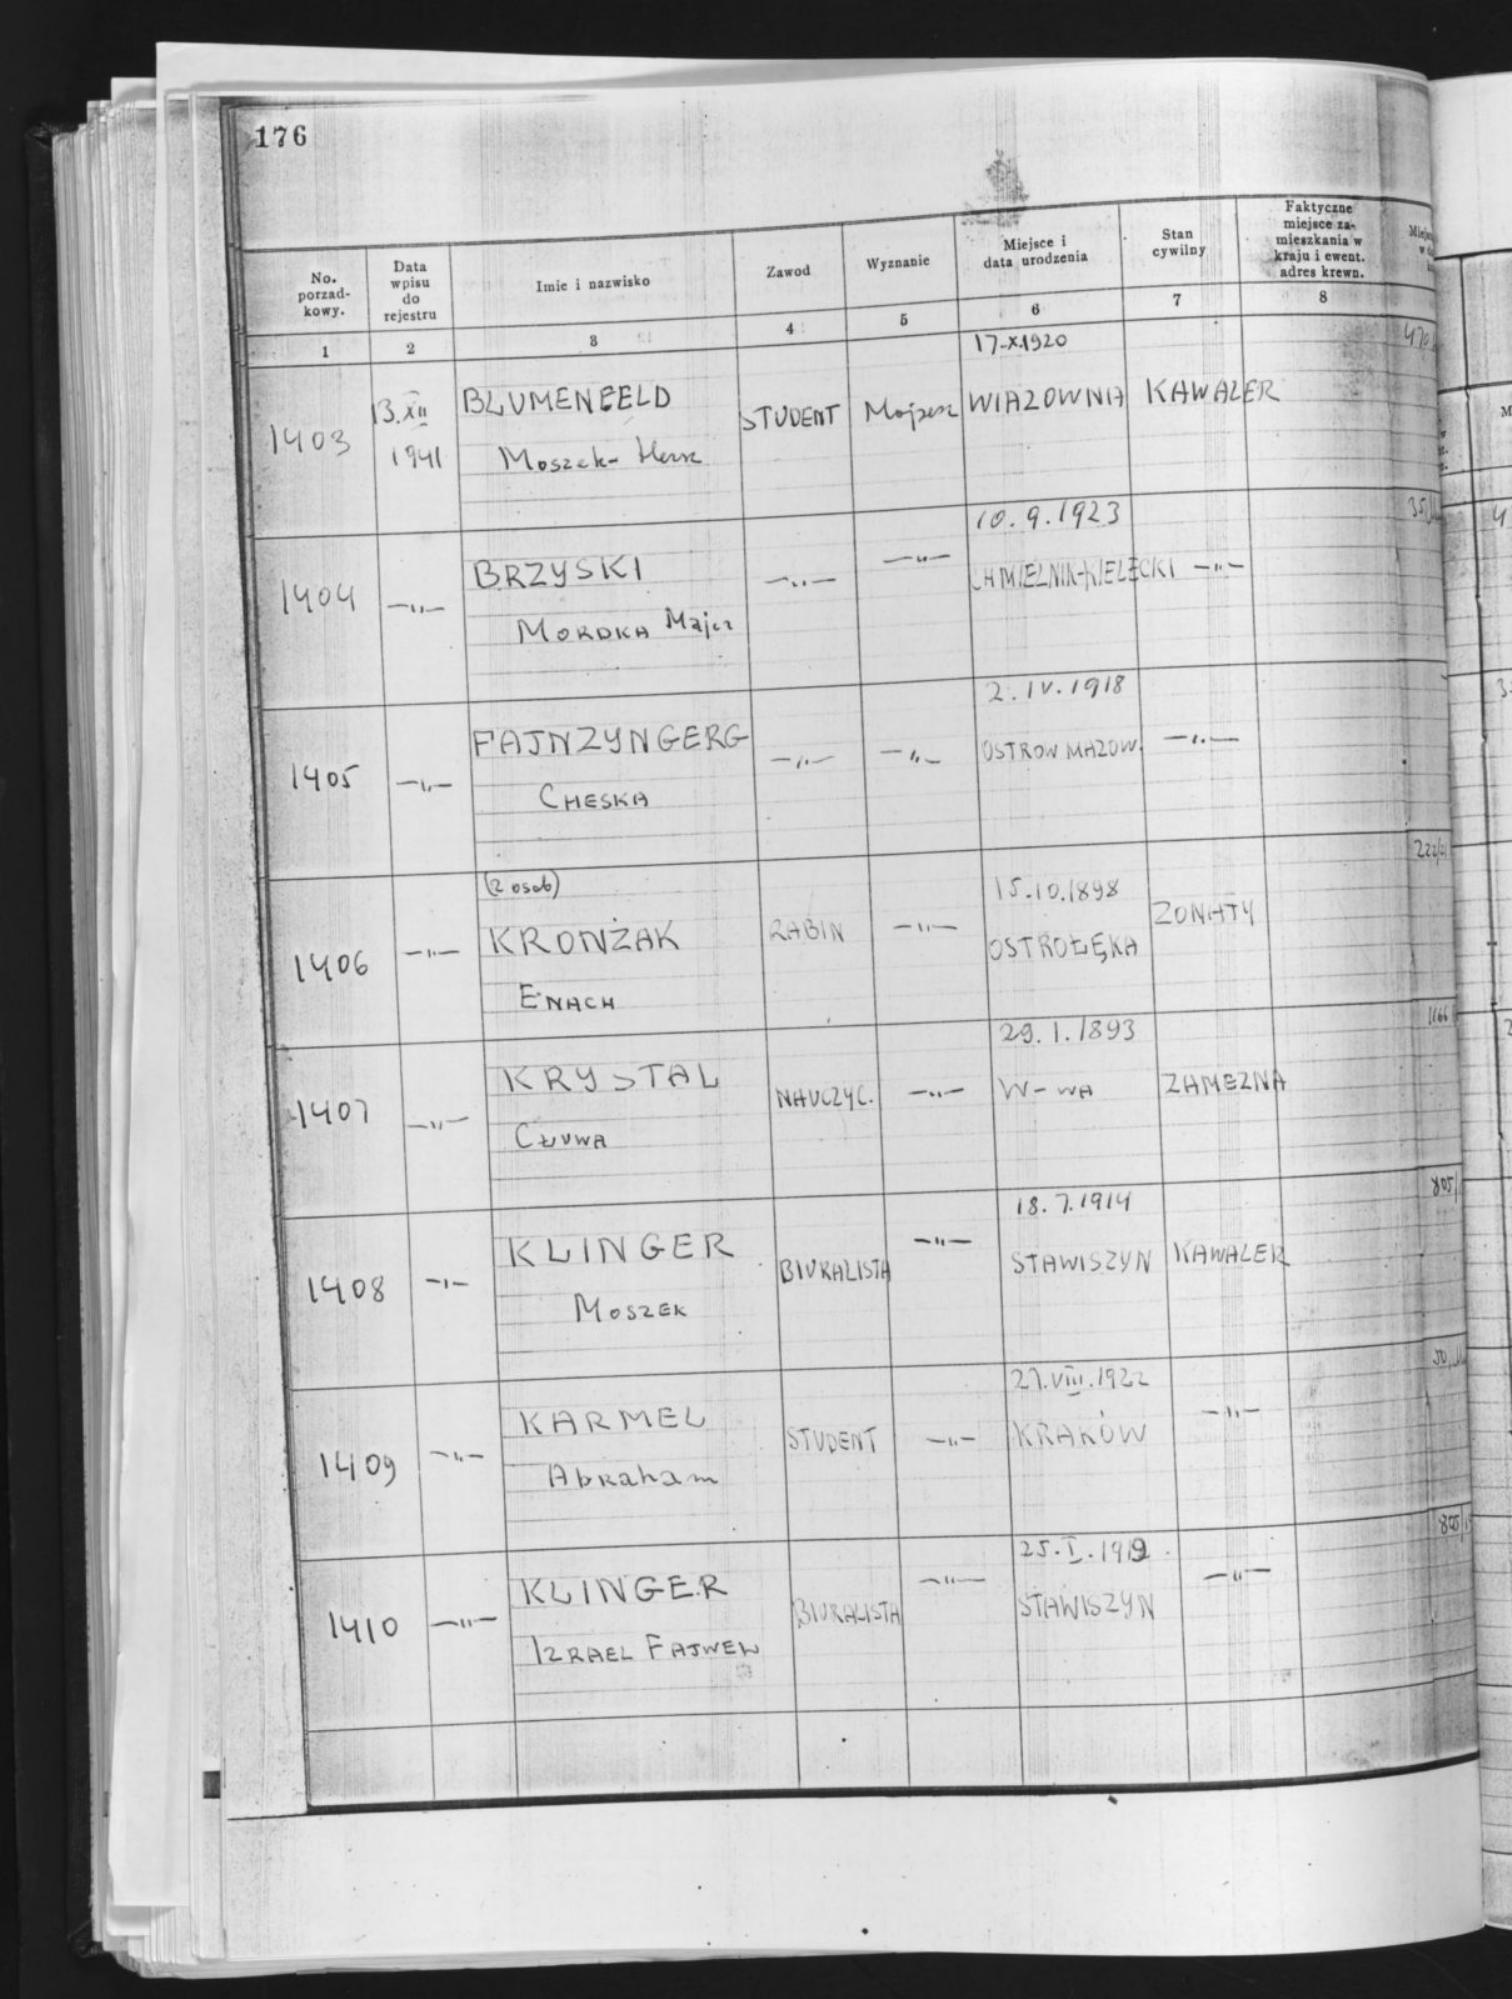 176
No. porzad- kowy.
Data wpisu do rejestru
Imie i nazwisko
Zawod
Wyznanie
Miejsce i data urodzenia
Stan cywilny
Faktyczne miejsce za- mieszkania w kraju i ewent. adres krewn.
1 2 3 4 5 6 7 8
17-X.1920
1403 13.XII BLUMENFELD STUDENT Mojzesz WIAZOWNIA KAWALER
1941 Moszek-Hersz
10.9.1923
1404 —"— BRZYSKI —"— —"— CHMIELNIK-KIELECKI —"—
MORDKA Majer
2.IV.1918
1405 —"— FAJNZYNGERG —"— —"— OSTROW MAZOW. —"—
CHESKA
(2 osob) 15.10.1898
1406 —"— KRONŻAK RABIN —"— OSTROŁĘKA ZONATY
ENACH
29.I.1893
1407 —"— KRYSTAL NAUCZYC. —"— W-WA ZAMEZNA
CŁUWA
18.7.1914
1408 —"— KLINGER BIURALISTA —"— STAWISZYN KAWALER
MOSZEK
27.VIII.1922
1409 —"— KARMEL STUDENT —"— KRAKÓW —"—
Abraham
25.I.1919
1410 —"— KLINGER BIURALISTA —"— STAWISZYN —"—
IZRAEL FAJWEL